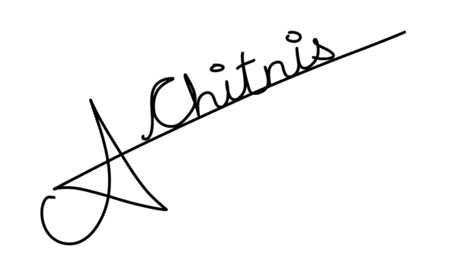 A Chitnis